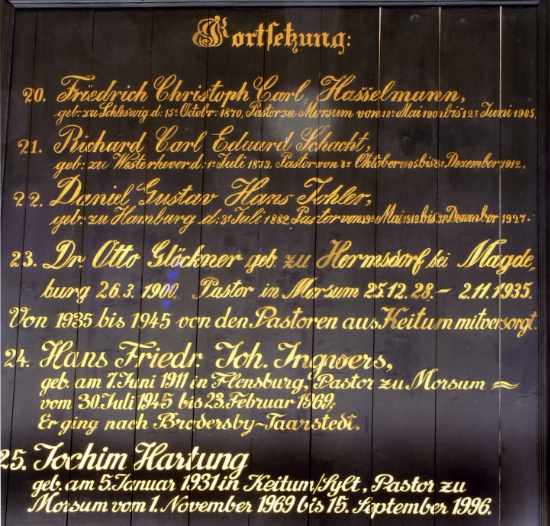 Fortsetzung:
20. Friedrich Christoph Carl Hasselmann,
geb: zu Schleswig d: 15ᵗ Octobr. 1870, Pastor zu Morsum vom Mai bis 12ᵗ Juni 1905.
21. Richard Carl Eduard Schacht,
geb: zu Westerhever d: 1ᵗ Juli 1873. Pastor vom 8ᵗ Oktober 1905 bis 31. Dezember 1912.
22. Daniel Gustav Hans Johler,
geb: zu Hamburg d: 3ᵗ Juli 1882. Pastor vom Mai bis Dezember 1927.
23. Dr Otto Glöckner geb. zu Hermsdorf bei Magde,
burg 26.3. 1900 Pastor in Morsum 23.12.28.– 2.11.1935.
Von 1935 bis 1945 von den Pastoren aus Keitum mitversorgt.
24. Hans Friedr. Joh. Ingwers,
geb. am 7. Juni 1911 in Flensburg, Pastor zu Morsum
vom 30. Juli 1945 bis 23. Februar 1869.
Er ging nach Brodersby-Taarstedt.
25. Jochim Hartung
geb. am 5. Januar 1931 in Keitum/Sylt, Pastor zu
Morsum vom 1. November 1969 bis 15. September 1996.